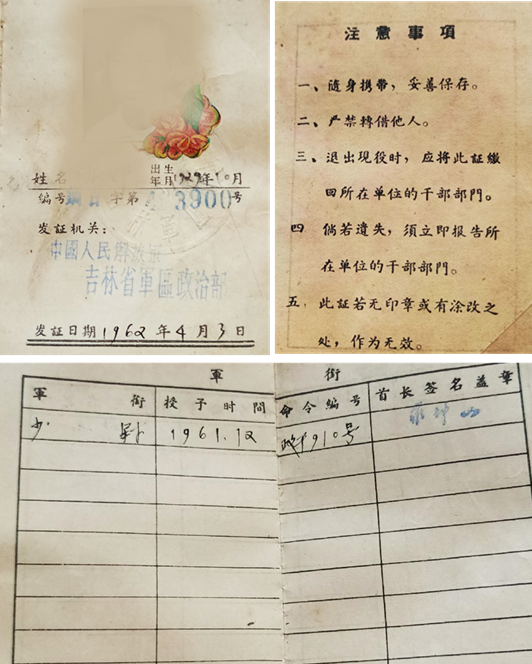 姓名
出生
年月 1929年10月
编号 字第 3900号
发证机关:
中國人民解放軍
吉林省軍區政治部
发证日期 1962年4月3日
注意事項
一、隨身携带,妥善保存。
二、严禁轉借他人。
三、退出現役时,应将此証繳
回所在单位的干部部門。
四 倘若遺失,須立即报告所
在单位的干部部門。
五、此証若无印章或有涂改之
处,作为无效。
軍銜
軍銜 授予时間 命令編号 首长签名盖章
少尉 1961.12 910号